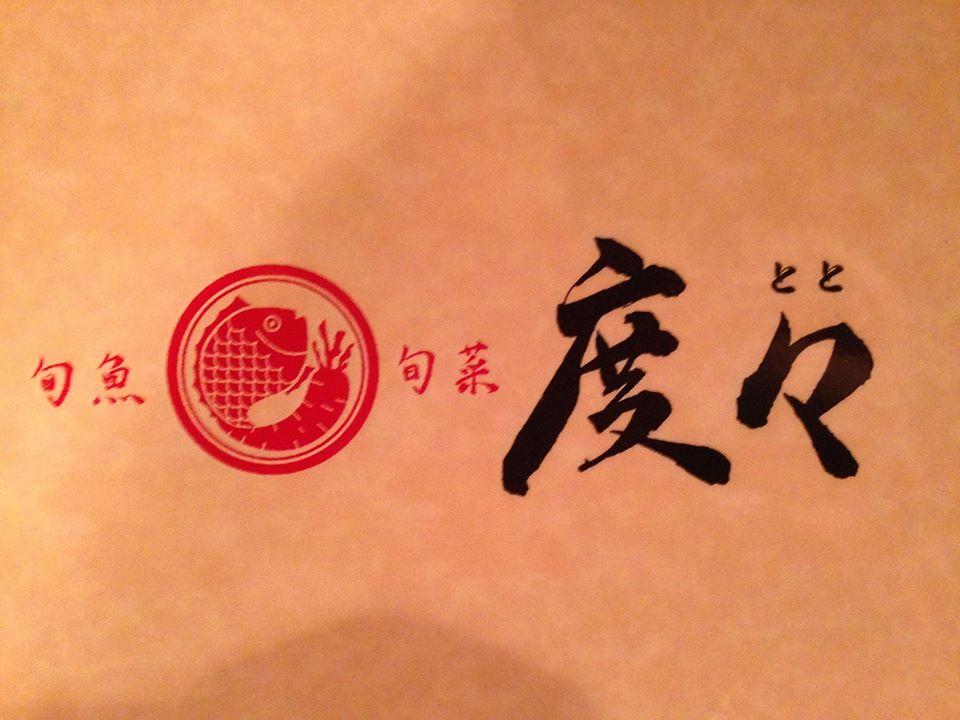 旬魚 旬菜 度々
とと